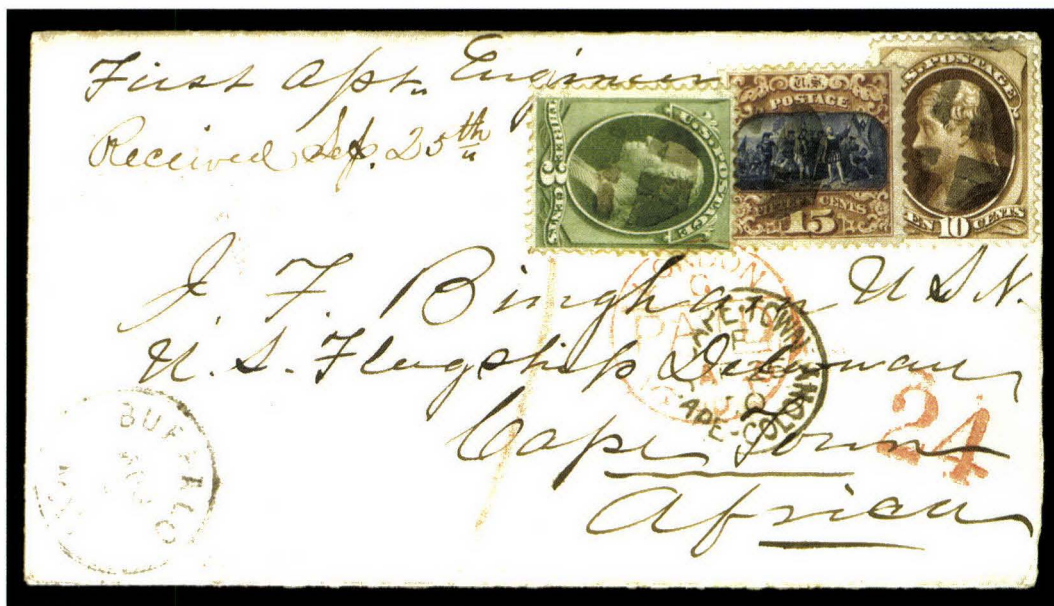 First Asst. Engineer
Received Sep. 25th
U.S. POSTAGE
THREE 3 CENTS
U.S. POSTAGE
FIFTEEN CENTS
15
U.S. POSTAGE
TEN 10 CENTS
J. F. Bingham U.S.N.
U.S. Flagship
Cape Town
Africa
LONDON
PAID
CAPE TOWN
CAPE-COLONY
24
BUFFALO